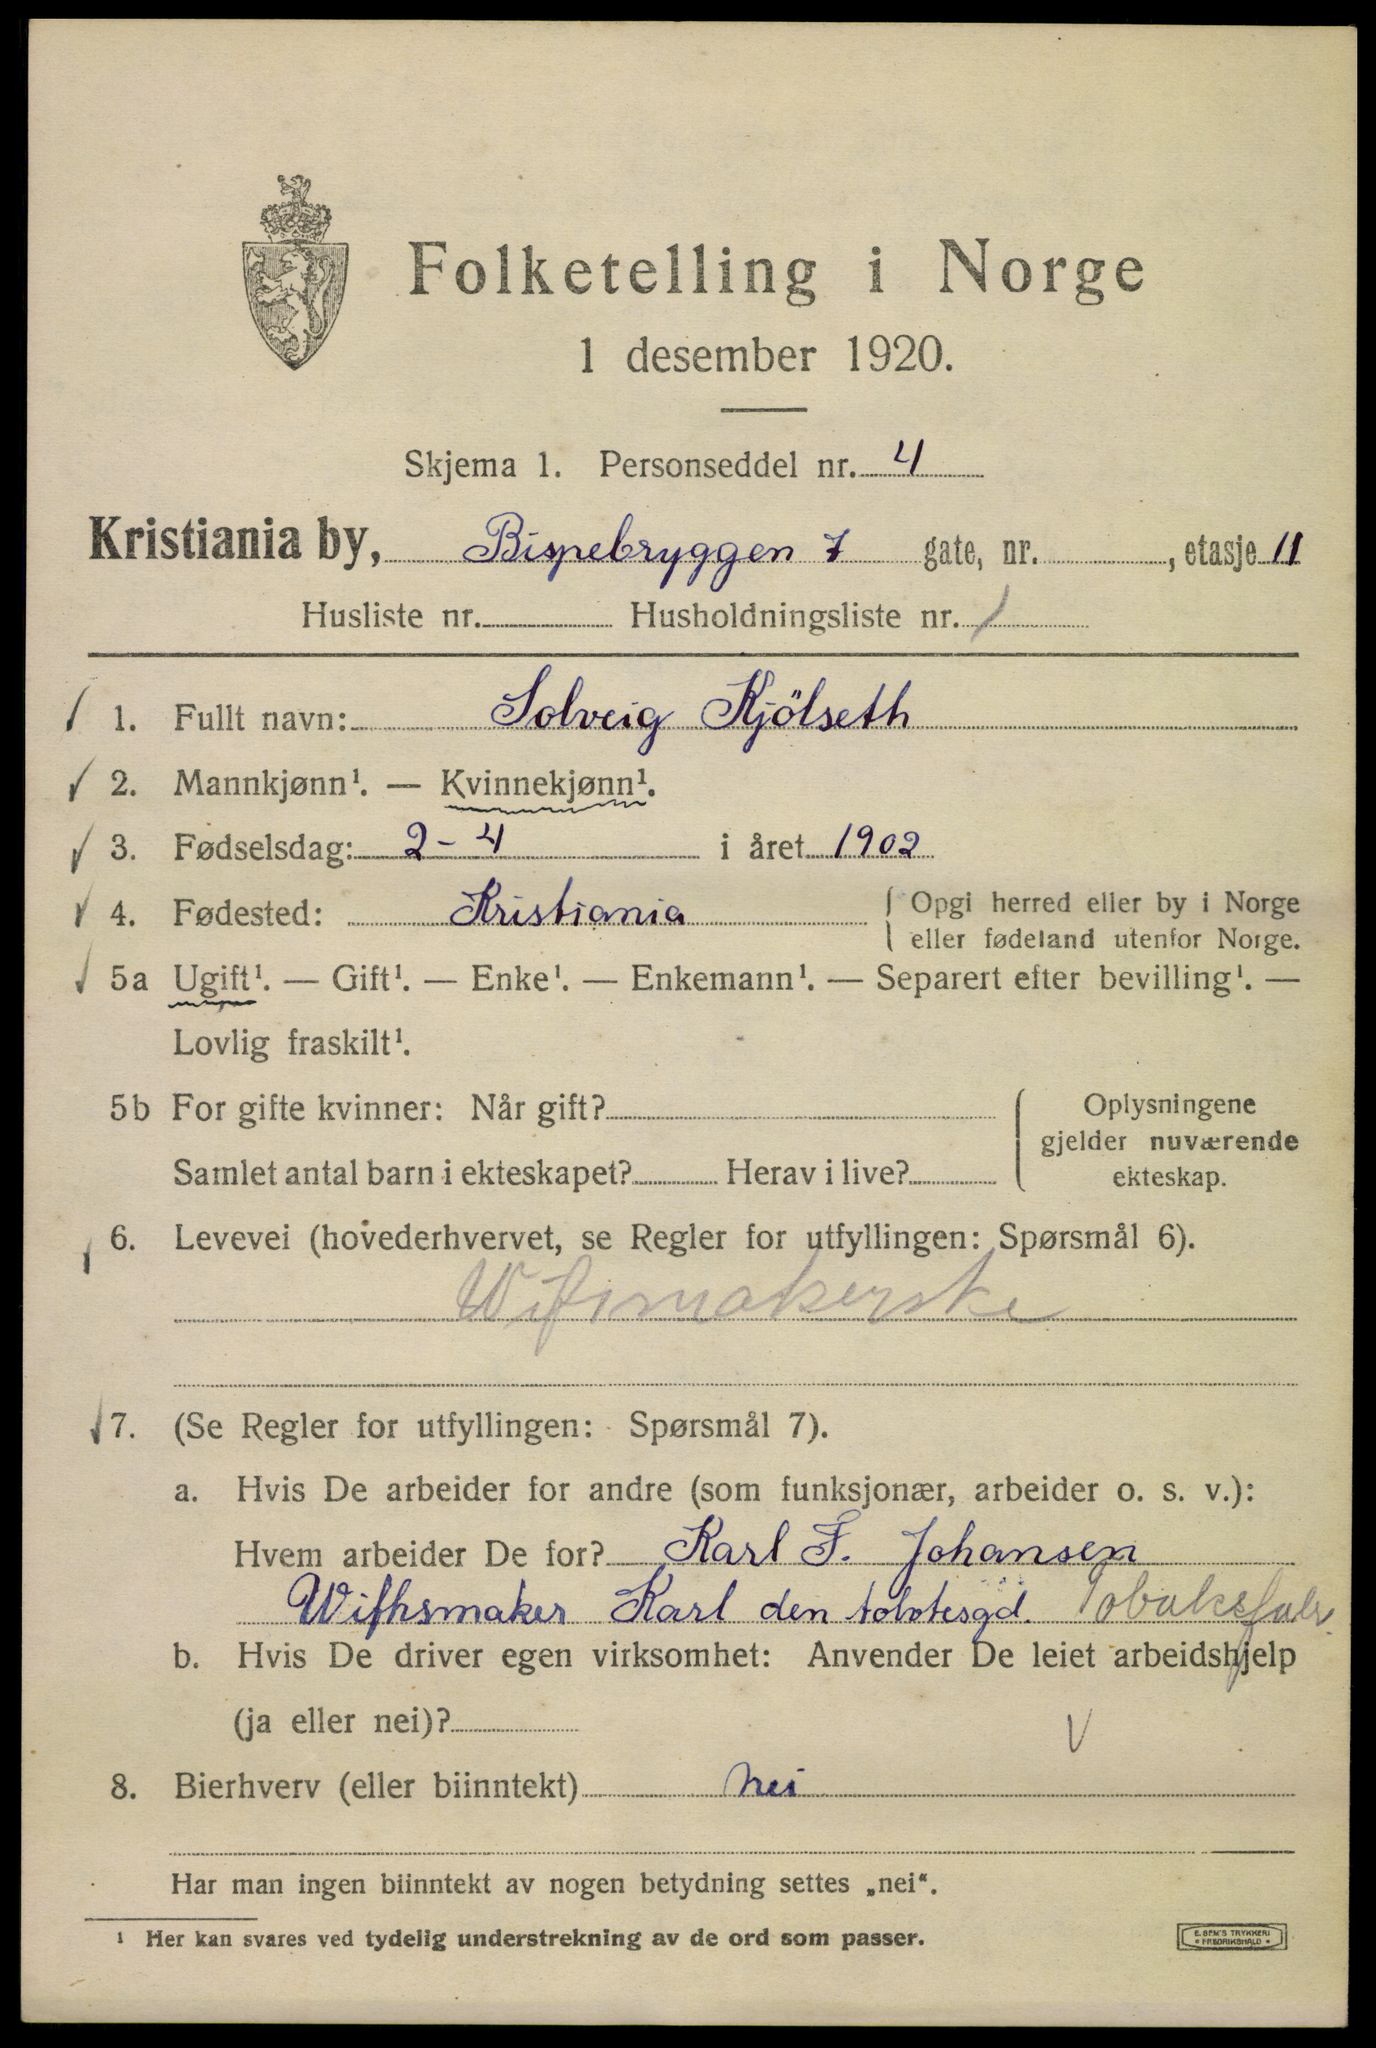 Folketelling i Norge
1 desember 1920.
Skjema 1. Personseddel nr. 4
Kristiania by, Bispebryggen 7 gate, nr. , etasje 11
Husliste nr. Husholdningsliste nr. 1
1. Fullt navn: Solveig Kjölseth
2. Mannkjønn¹. — Kvinnekjønn¹.
3. Fødselsdag: 2-4 i året 1902
4. Fødested: Kristiania { Opgi herred eller by i Norge
eller fødeland utenfor Norge.
5a Ugift¹. — Gift¹. — Enke¹. — Enkemann¹. — Separert efter bevilling¹. —
Lovlig fraskilt¹.
5b For gifte kvinner: Når gift?
Samlet antal barn i ekteskapet? Herav i live?
{ Oplysningene
gjelder nuværende
ekteskap.
6. Levevei (hovederhvervet, se Regler for utfyllingen: Spørsmål 6).
Wifsmakerske
7. (Se Regler for utfyllingen: Spørsmål 7).
a. Hvis De arbeider for andre (som funksjonær, arbeider o. s. v.):
Hvem arbeider De for? Karl F. Johansen
Wifhsmaker Karl den tolvtesgd. Tobaksfabr.
b. Hvis De driver egen virksomhet: Anvender De leiet arbeidshjelp
(ja eller nei)? V
8. Bierhverv (eller biinntekt) Nei
Har man ingen biinntekt av nogen betydning settes „nei“.
¹ Her kan svares ved tydelig understrekning av de ord som passer.
E. SEM'S TRYKKERI
* FREDRIKSHALD *